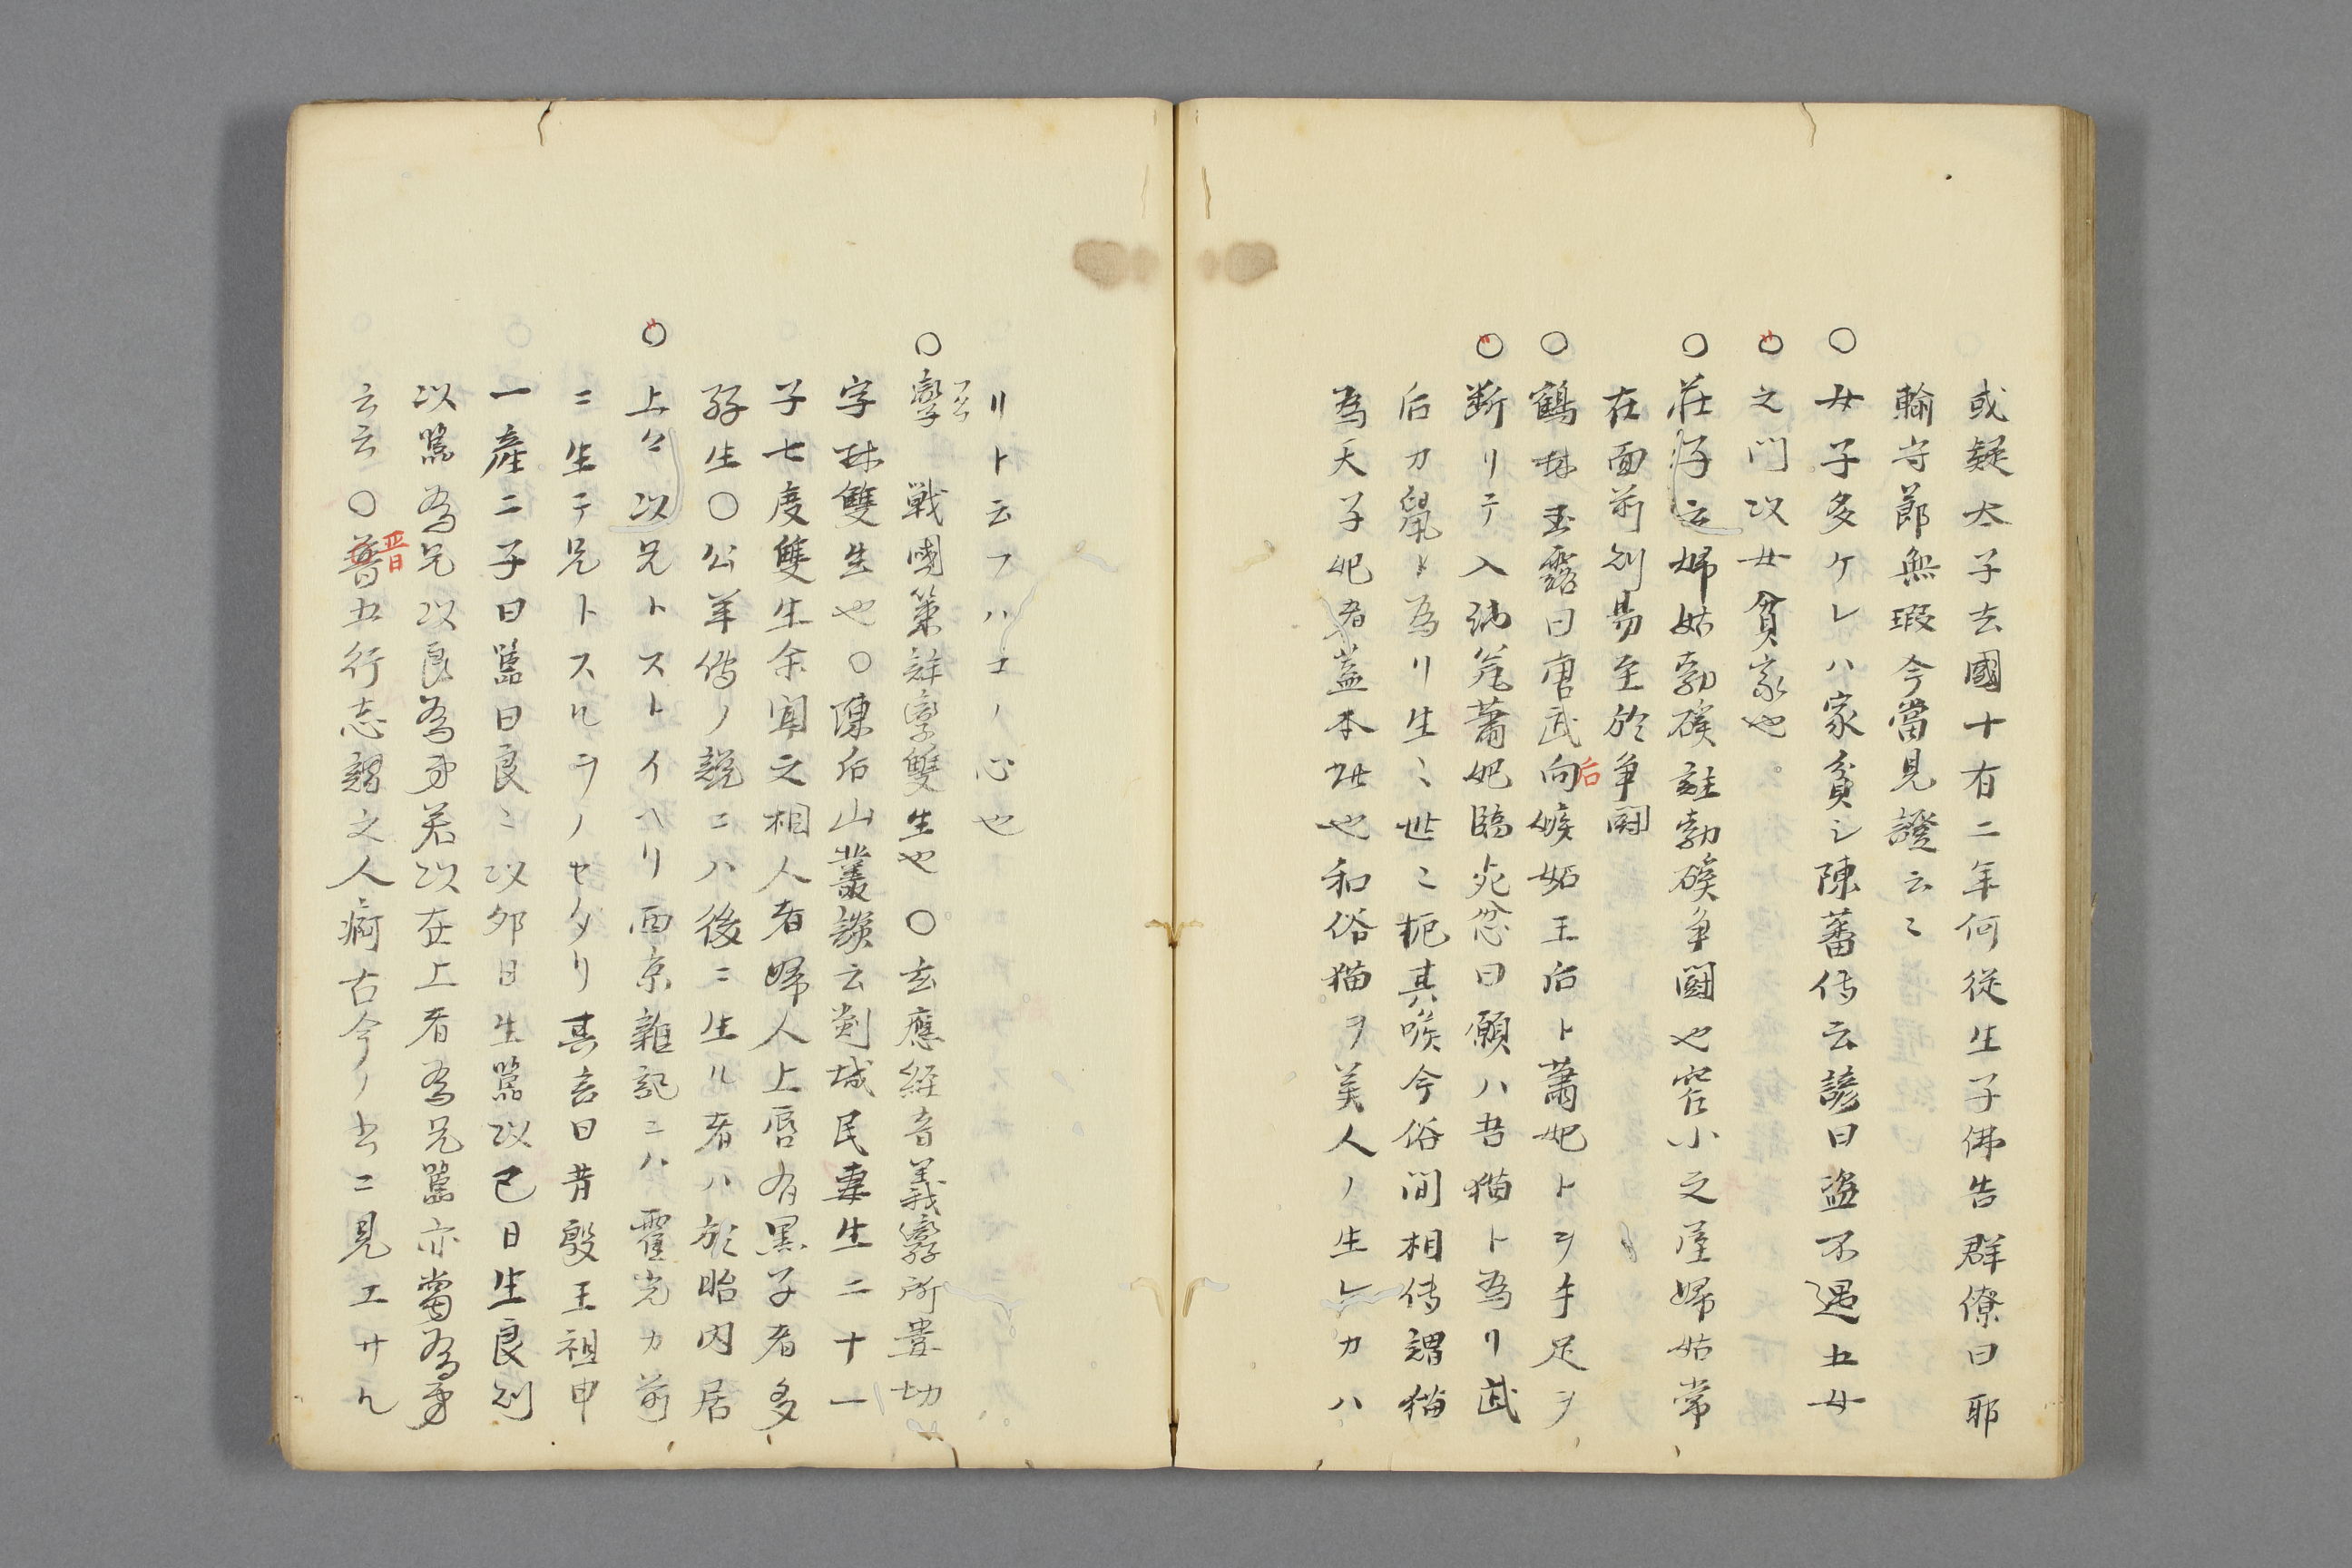 或疑太子去國十有二年何從生子佛告群僚曰耶
輸守節無瑕今當見證云〻
○女子多ケレハ家貧シ陳蕃傳云諺曰盗不過五女
○之門以女貧家也
○莊子云婦姑勃磎註勃磎争鬪也窄小之屋婦姑常
在面前則易至於争鬪
○鶴林玉露曰唐武向嫉妬王后ト蕭妃トヲ手足ヲ
后
○断リテ入酒瓮蕭妃臨死忿曰願ハ吾猫ト為リ武
后カ鼠ト為リ生〻世〻扼其喉今俗間相傳謂猫
為天子妃者蓋本此也和俗猫ヲ美人ノ生レカハ
リト云フハコノ心也
○孿 戦國策註孿雙生也○玄應經音義孿所眷切
フタコ
字林雙生也○陳后山叢談云剡城民妻生二十一
子七度雙生余聞之相人者婦人上唇有黒子者多
孖生○公羊傳ノ説ニハ後ニ生ル者ハ於胎内居
○上々以兄トストイヘリ西京雜記ニハ霍光カ前
ニ生テ兄トスルヲノセタリ其言曰昔殷王祖甲
一產二子曰嚚曰良〻以卯日生嚚以巳日生良則
以嚚為兄以良為弟若以在上者為兄嚚亦當為弟
云云○普五行志謂之人痾古今ノ书ニ見エサル
晋